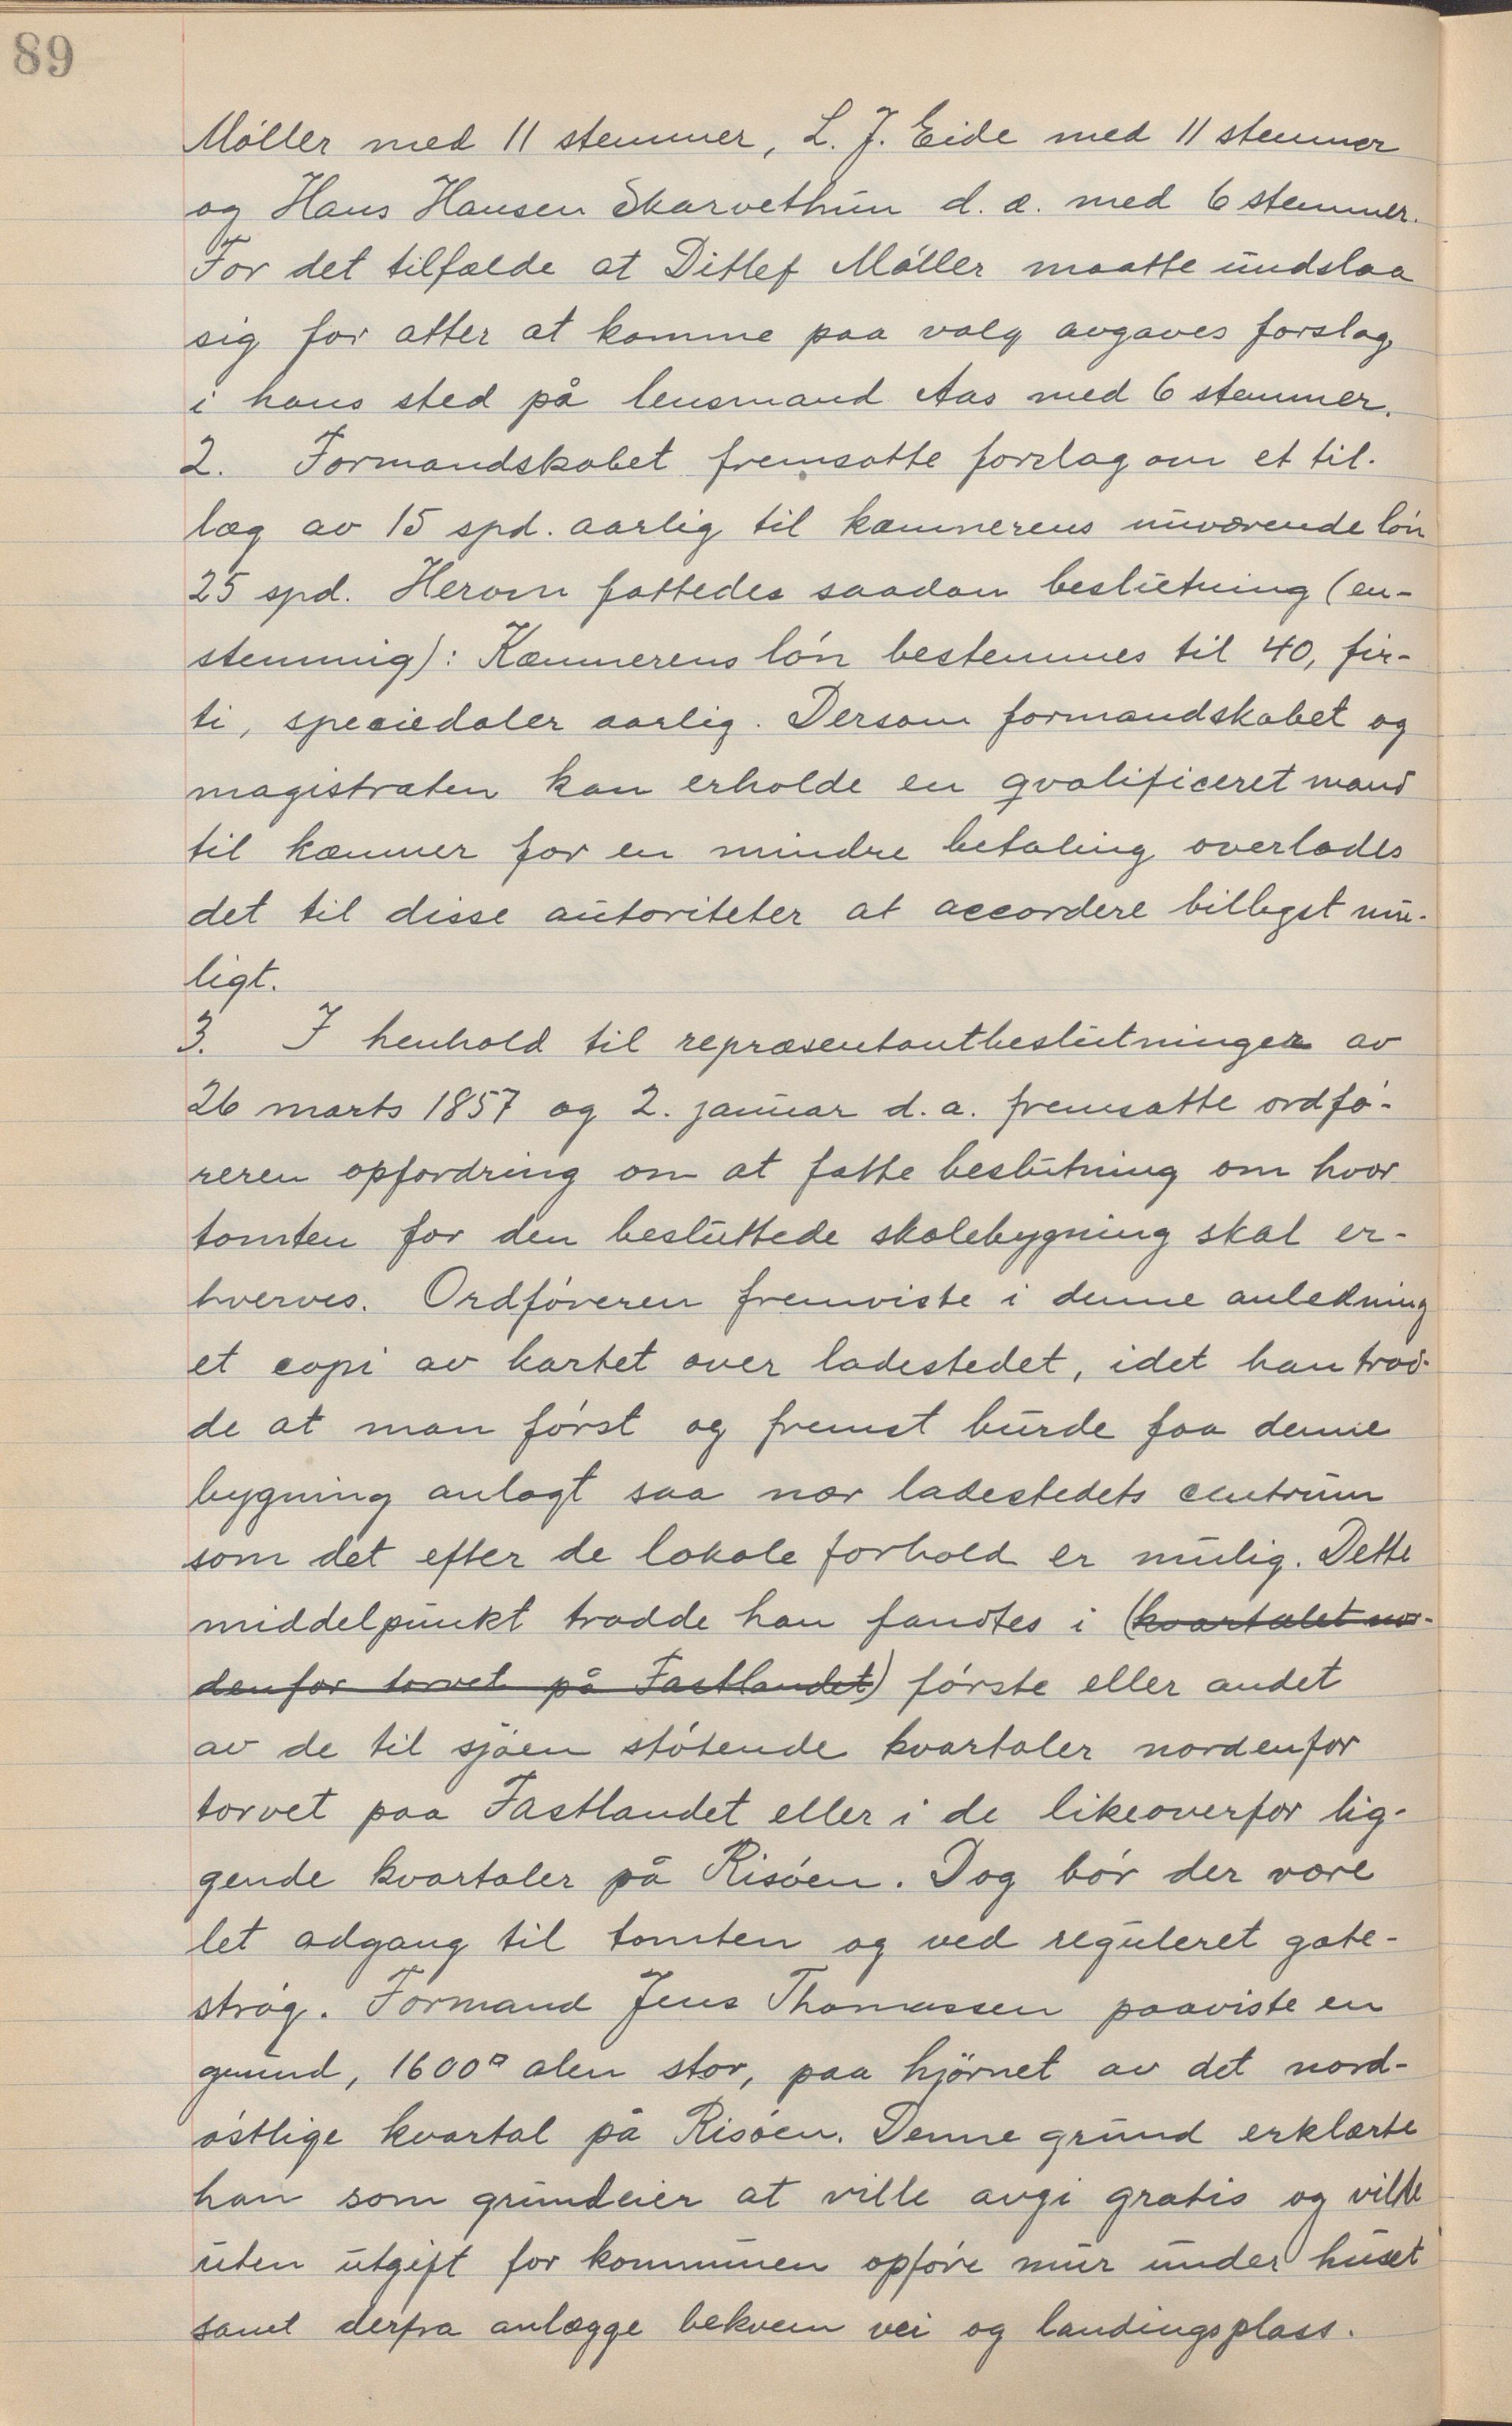 89
Möller med 11 stemmer, L. J. Eide med 11 stemmer
og Hans Hansen Skarvethun d. æ. med 6 stemmer.
For det tilfælde at Ditlef Möller maatte undslaa
sig for atter at komme paa valg avgaves forslag
i hans sted på lensmand Aas med 6 stemmer.
2. Formandskabet fremsatte forslag om et til-
læg av 15 spd. aarlig til kæmnerens nuværende lön
25 spd. Herom fattedes saadan beslutning (en-
stemmig): Kæmnerens lön bestemmes til 40, fir-
ti, speciedaler aarlig. Dersom formandskabet og
magistraten kan erholde en qvalificeret mand
til kæmner for en mindre betaling overlades
det til disse autoriteter at accordere billigst mu-
ligt.
3. I henhold til repræsentantbeslutninger av
26 marts 1857 og 2. januar d. a. fremsatte ordfö-
reren opfordring om at fatte beslutning om hvor
tomten for den besluttede skolebygning skal er-
hverves. Ordföreren fremviste i denne anledning
et copi av kartet over ladestedet, idet han trod-
de at man först og fremst burde faa denne
bygning anlagt saa nær ladestedets centrum
som det efter de lokale forhold er mulig. Dette
middelpunkt trodde han fandtes i (kvartalet nor-
denfor torvet på Fastlandet) förste eller andet
av de til sjöen stötende kvartaler nordenfor
torvet paa Fastlandet eller i de likeoverfor lig-
gende kvartaler på Risöen. Dog bör der være
let adgang til tomten og ved reguleret gate-
strög. Formand Jens Thomassen paaviste en
grund, 1600□ alen stor, paa hjörnet av det nord-
östlige kvartal på Risöen. Denne grund erklærte
han som grundeier at ville avgi gratis og vilde
uten utgift for kommunen opföre mur under huset
samt derfra anlægge bekvem vei og landingsplass.